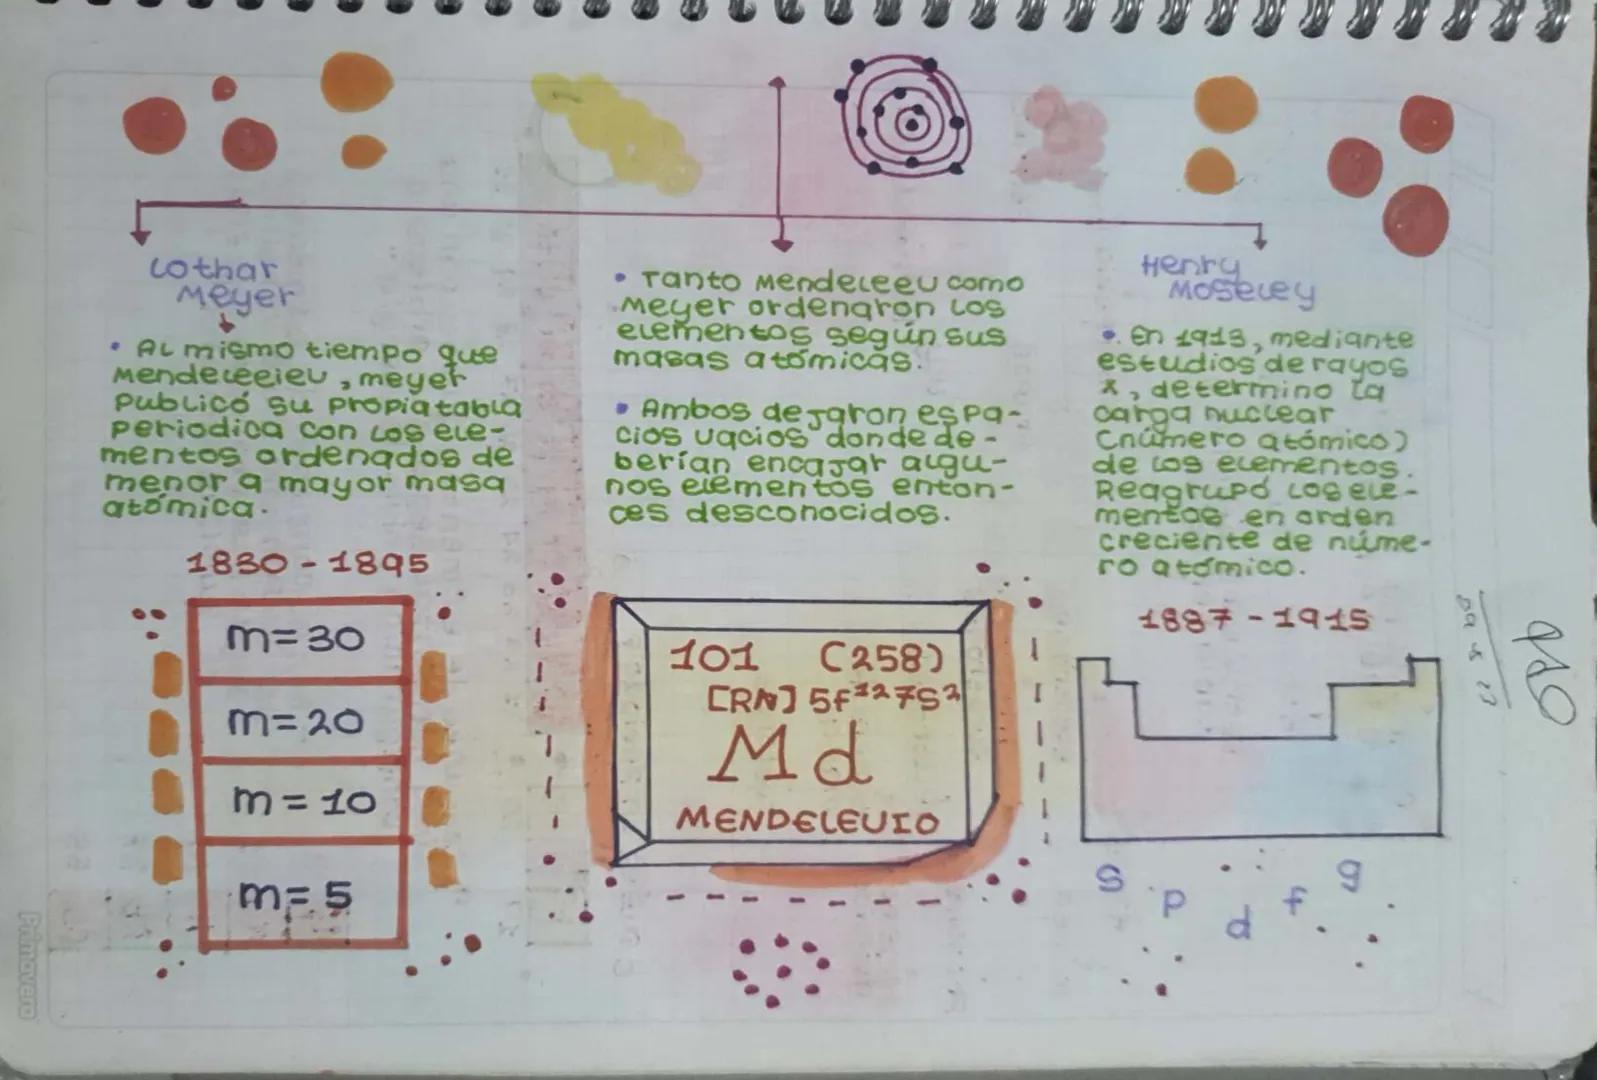 Lothar
Meyer
• Al mismo tiempo que
Mendeleeieu, meyer
publicó su propia tabla
periodica con los ele-
mentos ordenados de
menor a mayor masa
atómica.
1830 - 1895
m= 30
m= 20
m = 10
m= 5
• Tanto Mendeleeu como
Meyer ordenaron los
elementos según sus
masas atómicas.
• Ambos dejaron espa-
cios vacios donde de-
berían encajar algu-
nos elementos enton-
ces desconocidos.
101 (258)
[RN] 5f¹²7s²
Md
MENDELEVIO
Henry
Moseley
•. En 1913, mediante
estudios de rayos
x, determino la
carga nuclear
(número atómico)
de los elementos.
Reagrupó los ele-
mentos en orden
creciente de núme-
ro atómico.
1887 - 1915
s p d f g
Primavera